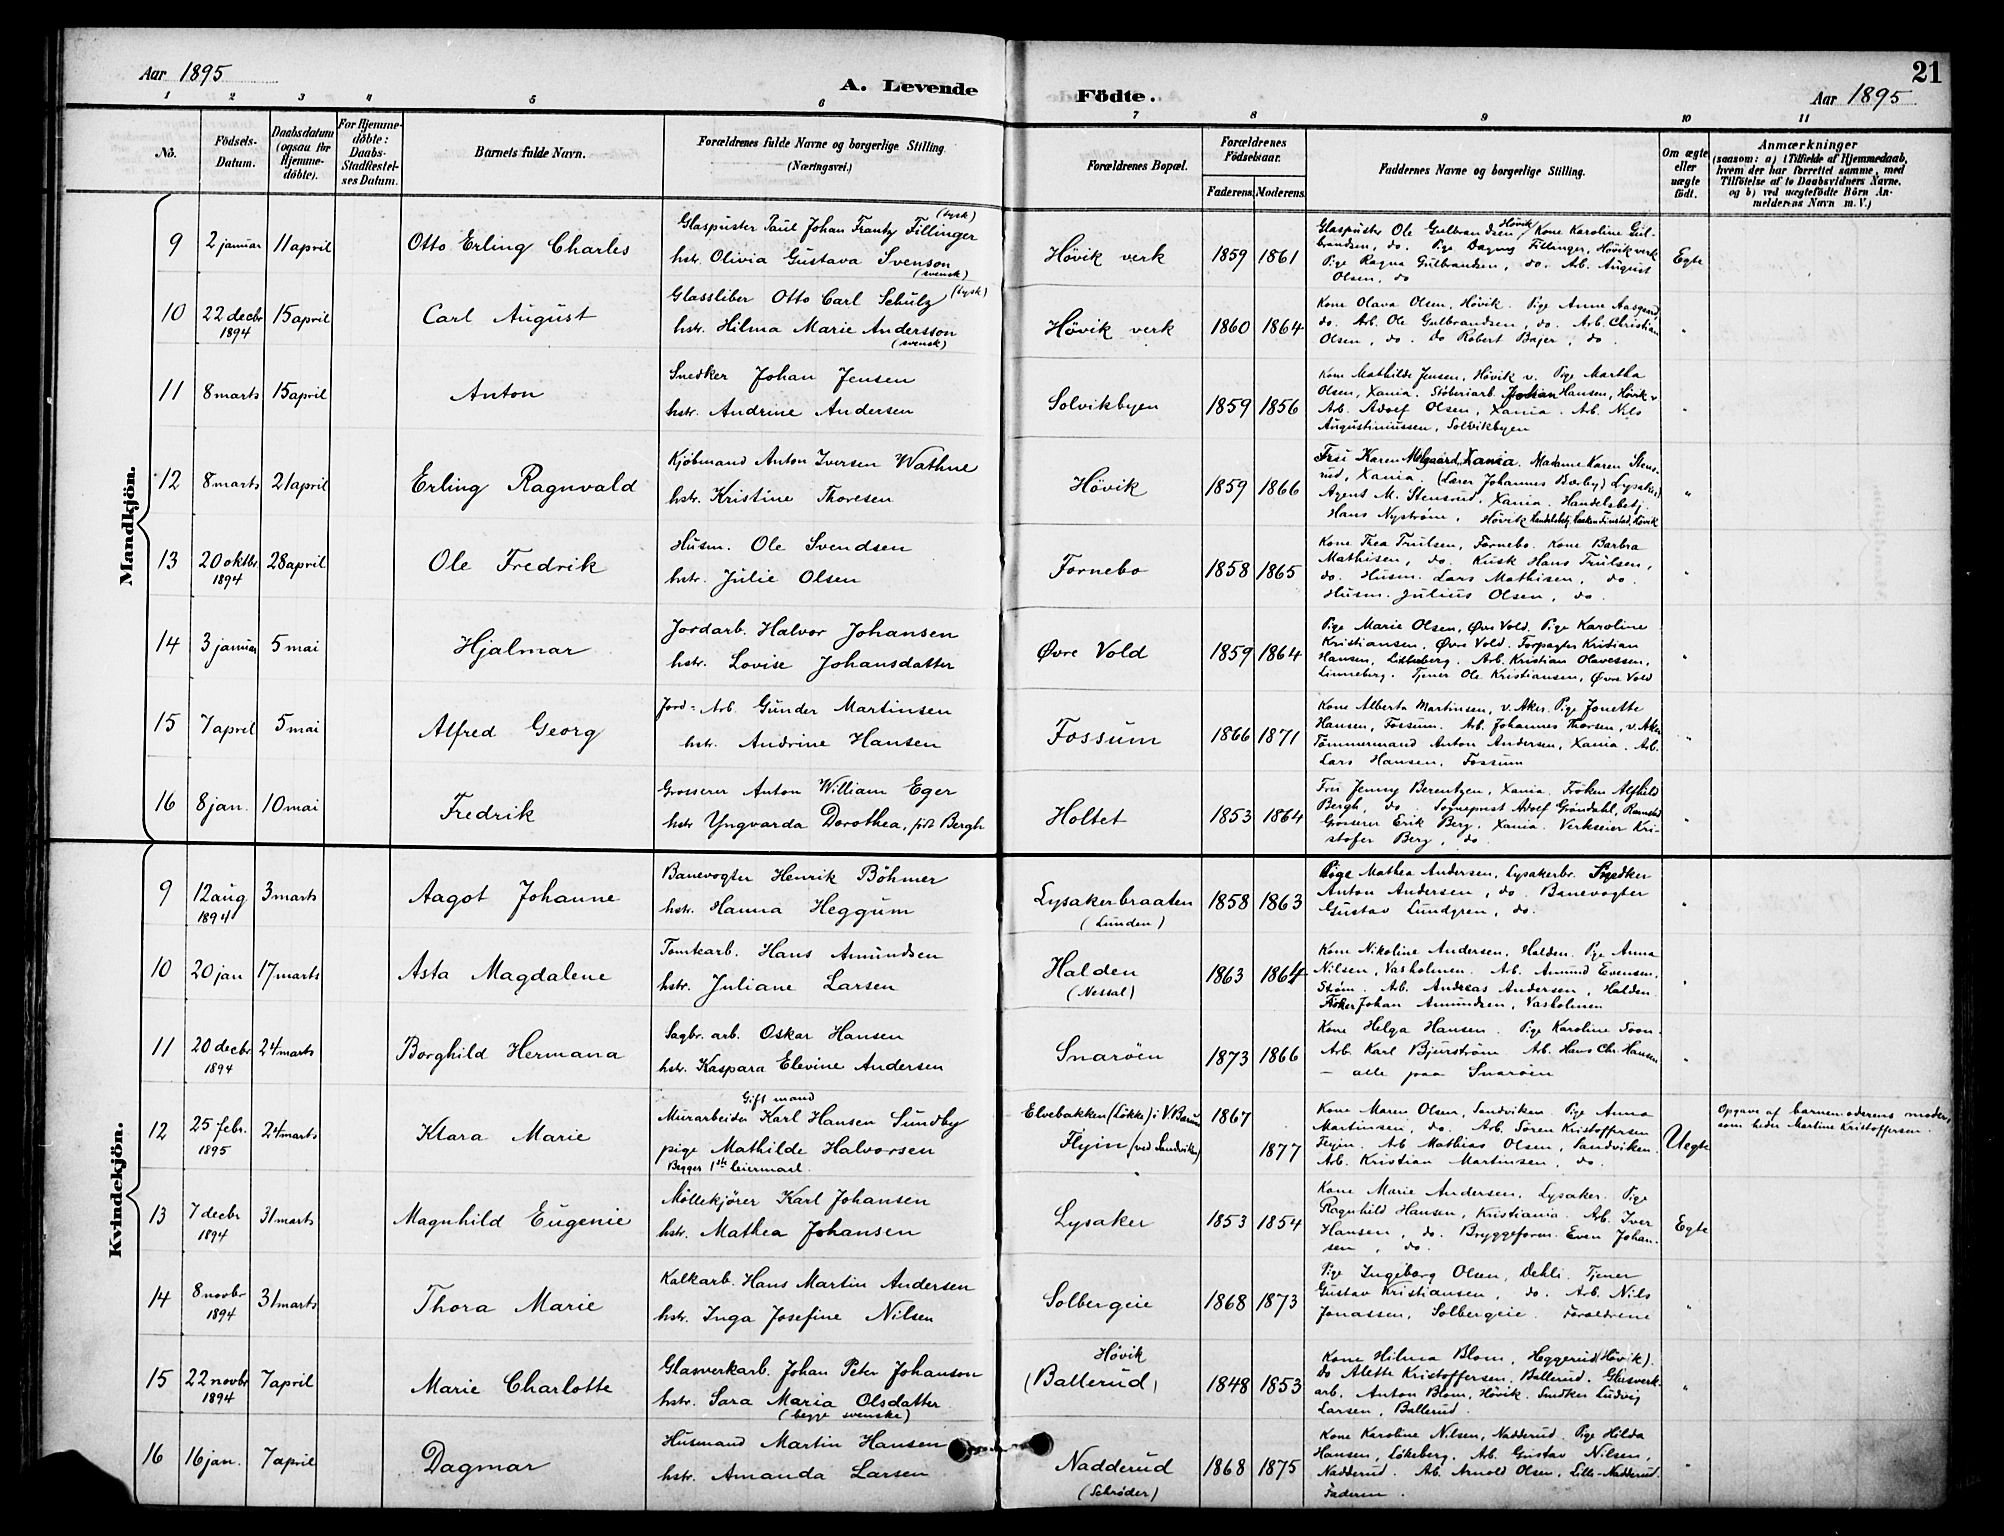 Aar 1895
A. Levende Födte.
Aar 1895
21
1 2 3 4 5 6 7 8 9 10 11
No.
Födsels-Datum.
Daabsdatum (ogsaa for Hjemmedöbte).
For Hjemmedöbte: Daabs-Stadfæstelses Datum.
Barnets fulde Navn.
Forældrenes fulde Navne og borgerlige Stilling. (Næringsvei.)
Forældrenes Bopæl.
Forældrenes Födselsaar.
Faderens. Moderens.
Faddernes Navne og borgerlige Stilling.
Om ægte eller uægte födt.
Anmærkninger
(saasom: a) i Tilfælde af Hjemmedaab, hvem der har forrettet samme, med Tilföielse af to Daabsvidners Navne, og b) ved uægtefödte Börn Anmelderens Navn m. V.)
Mandkjön.
9 2 januar 11 april Otto Erling Charles
Glaspuster Paul Johan Frantz Fillinger (tysk)
hstr. Olivia Gustava Svenson (svensk)
Høvik verk 1859 1861
Glaspuster Ole Gulbrandsen, Høvik, Kone Karoline Gul-
brandsen, do. Pige Dagny Fillinger, Høvik verk
Pige Ragna Gulbrandsen, do. Arb. August
Olsen, do
Egte
10 22 decbr 1894 15 april Carl August
Glassliber Otto Carl Schulz (tysk)
hstr. Hilma Marie Andersson (svensk)
Høvik verk 1860 1864
Kone Olava Olsen, Høvik. Pige Anna Aasgaard,
do. Arb. Ole Gulbrandsen, do. Arb. Christian
Olsen, do. Do Robert Bajer, do.
"
11 8 marts 15 april Anton
Snedker Johan Jensen
hstr. Andrine Andersen
Solvikbyen 1859 1856
Kone Mathilde Jensen, Høvik v. Pige Martha
Olsen, Xania. Støberiarb. Johan Hansen, Høvik v
Arb. Adolf Olsen, Xania. Arb. Nils
Augustiniussen, Solvikbyen
"
12 8 marts 21 april Erling Ragnvald
Kjøbmand Anton Iversen Wathne
hstr. Kristine Thoresen
Høvik 1859 1866
Fru Karen Melgaard, Xania. Madame Karen Stens-
rud, Xania. (Lærer Johannes Bærby) Lysaker)
Agent M. Stensrud, Xania. Handelsbetj.
Hans Nystrøm, Høvik Handelsbetj. Haaken Finstad, Høvik
"
13 20 oktbr 1894 28 april Ole Fredrik
Husm. Ole Svendsen
hstr. Julie Olsen
Fornebo 1858 1865
Kone Thea Trulsen, Fornebo. Kone Barbra
Mathisen, do. Kusk Hans Trulsen,
do. Husm. Lars Mathisen, do.
Husm. Julius Olsen, do.
"
14 3 januar 5 mai Hjalmar
Jordarb. Halvor Johansen
hstr. Lovise Johansdatter
Øvre Vold 1859 1864
Pige Marie Olsen, Øvre Vold. Pige Karoline
Kristiansen, Øvre Vold. Forpagter Kristian
Hansen, Linneberg. Arb. Kristian Olavessen,
Linneberg. Tjener Ole Kristiansen, Øvre Vold
"
15 7 april 5 mai Alfred Georg
Jord-Arb. Gunder Martinsen
hstr. Andrine Hansen
Fossum 1866 1871
Kone Alberta Martinsen, v. Aker. Pige Jonette
Hansen, Fossum. Arb. Johannes Thorsen, v. Aker
Tømmermand Anton Andersen, Xania. Arb.
Lars Hansen, Fossum
"
16 8 jan. 10 mai Fredrik
Grosserer Anton William Eger
hstr Yngvarda Dorothea, født Bergh
Holtet 1853 1864
Fru Jenny Berentzen, Xania. Frøken Alfhild
Bergh, do. Sogneprest Adolf Grøndahl, Ramstad
Grosserer Erik Berg, Xania. Verkseier Kri-
stofer Berg, do.
"
Kvindekjön.
9 12 aug 1894 3 marts Aagot Johanne
Banevogter Henrik Böhmer
hstr. Hanna Heggum
Lysakerbraaten (Lunden) 1858 1863
Pige Mathea Andersen, Lysakerbr. Snedker
Anton Andersen, do. Banevogter
Gustav Lundgren, do.
"
10 20 jan 17 marts Asta Magdalene
Tomtearb. Hans Amundsen
hstr. Juliane Larsen
Halden (Nessal) 1863 1864
Kone Nikoline Andersen, Halden. Pige Anna
Nilsen, Vasholmen. Arb. Amund Evensen,
Strøm. Arb. Andreas Andersen, Halden.
Fisker Johan Amundsen, Vasholmen
"
11 20 decbr 1894 24 marts Borghild Hermana
Sagbr. arb. Oskar Hansen
hstr. Kaspara Elevine Andersen
Snarøen 1873 1866
Kone Helga Hansen. Pige Karoline Soon.
Arb. Karl Bjurstrøm Arb. Hans Chr. Hansen
– alle paa Snarøen
"
12 25 febr. 1895 24 marts Klara Marie
Gift mand
Murarbeider Karl Hansen Sundby
pige Mathilde Halvorsen
Begges 1ste leiermaal.
Elvebakken (Løkke) i V. Bærum 1867
Flyin (ved Sandviken) 1877
Kone Maren Olsen, Sandviken. Pige Anna
Martinsen, do. Arb. Søren Kristoffersen
Flyin. Arb Mathias Olsen, Sandviken.
Arb. Kristian Martinsen, do.
Uegte
Opgave af barnemoderens moder,
som heder Martine Kristoffersen.
13 7 decbr 1894 31 marts Magnhild Eugenie
Møllekjører Karl Johansen
hstr. Mathea Johansen
Lysaker 1853 1854
Kone Marie Andersen, Lysaker. Pige
Ragnhild Hansen, Kristiania. Arb. Iver
Hansen, do. Bryggeform. Even Johan-
sen, do.
Egte
14 8 novbr 1894 31 marts Thora Marie
Kalkarb. Hans Martin Andersen
hstr. Inga Josefine Nilsen
Solbergeie 1868 1873
Pige Ingeborg Olsen, Dehli. Tjener
Gustav Kristiansen, do. Arb. Nils
Jonassen, Solbergeie. Forældrene
"
15 22 novbr 1894 7 april Marie Charlotte
Glasverkarb. Johan Peter Johanson
hstr. Sara Maria Olsdatter
(begge svenske)
Høvik (Ballerud) 1848 1853
Kone Hilma Blom, Heggerud (Høvik).
do Alette Kristoffersen, Ballerud. Glasverk-
arb. Anton Blom, Høvik. Snedker Ludvig
Larsen, Ballerud.
"
16 16 jan. 7 april Dagmar
Husmand Martin Hansen
hstr. Amanda Larsen
Nadderud (Schrøder) 1868 1875
Kone Karoline Nilsen, Nadderud. Pige Hilda
Hansen, Løkeberg. Arb. Gustav Nilsen,
Nadderud. Arb. Arnold Olsen, Lille-Nadderud.
Faderen.
"